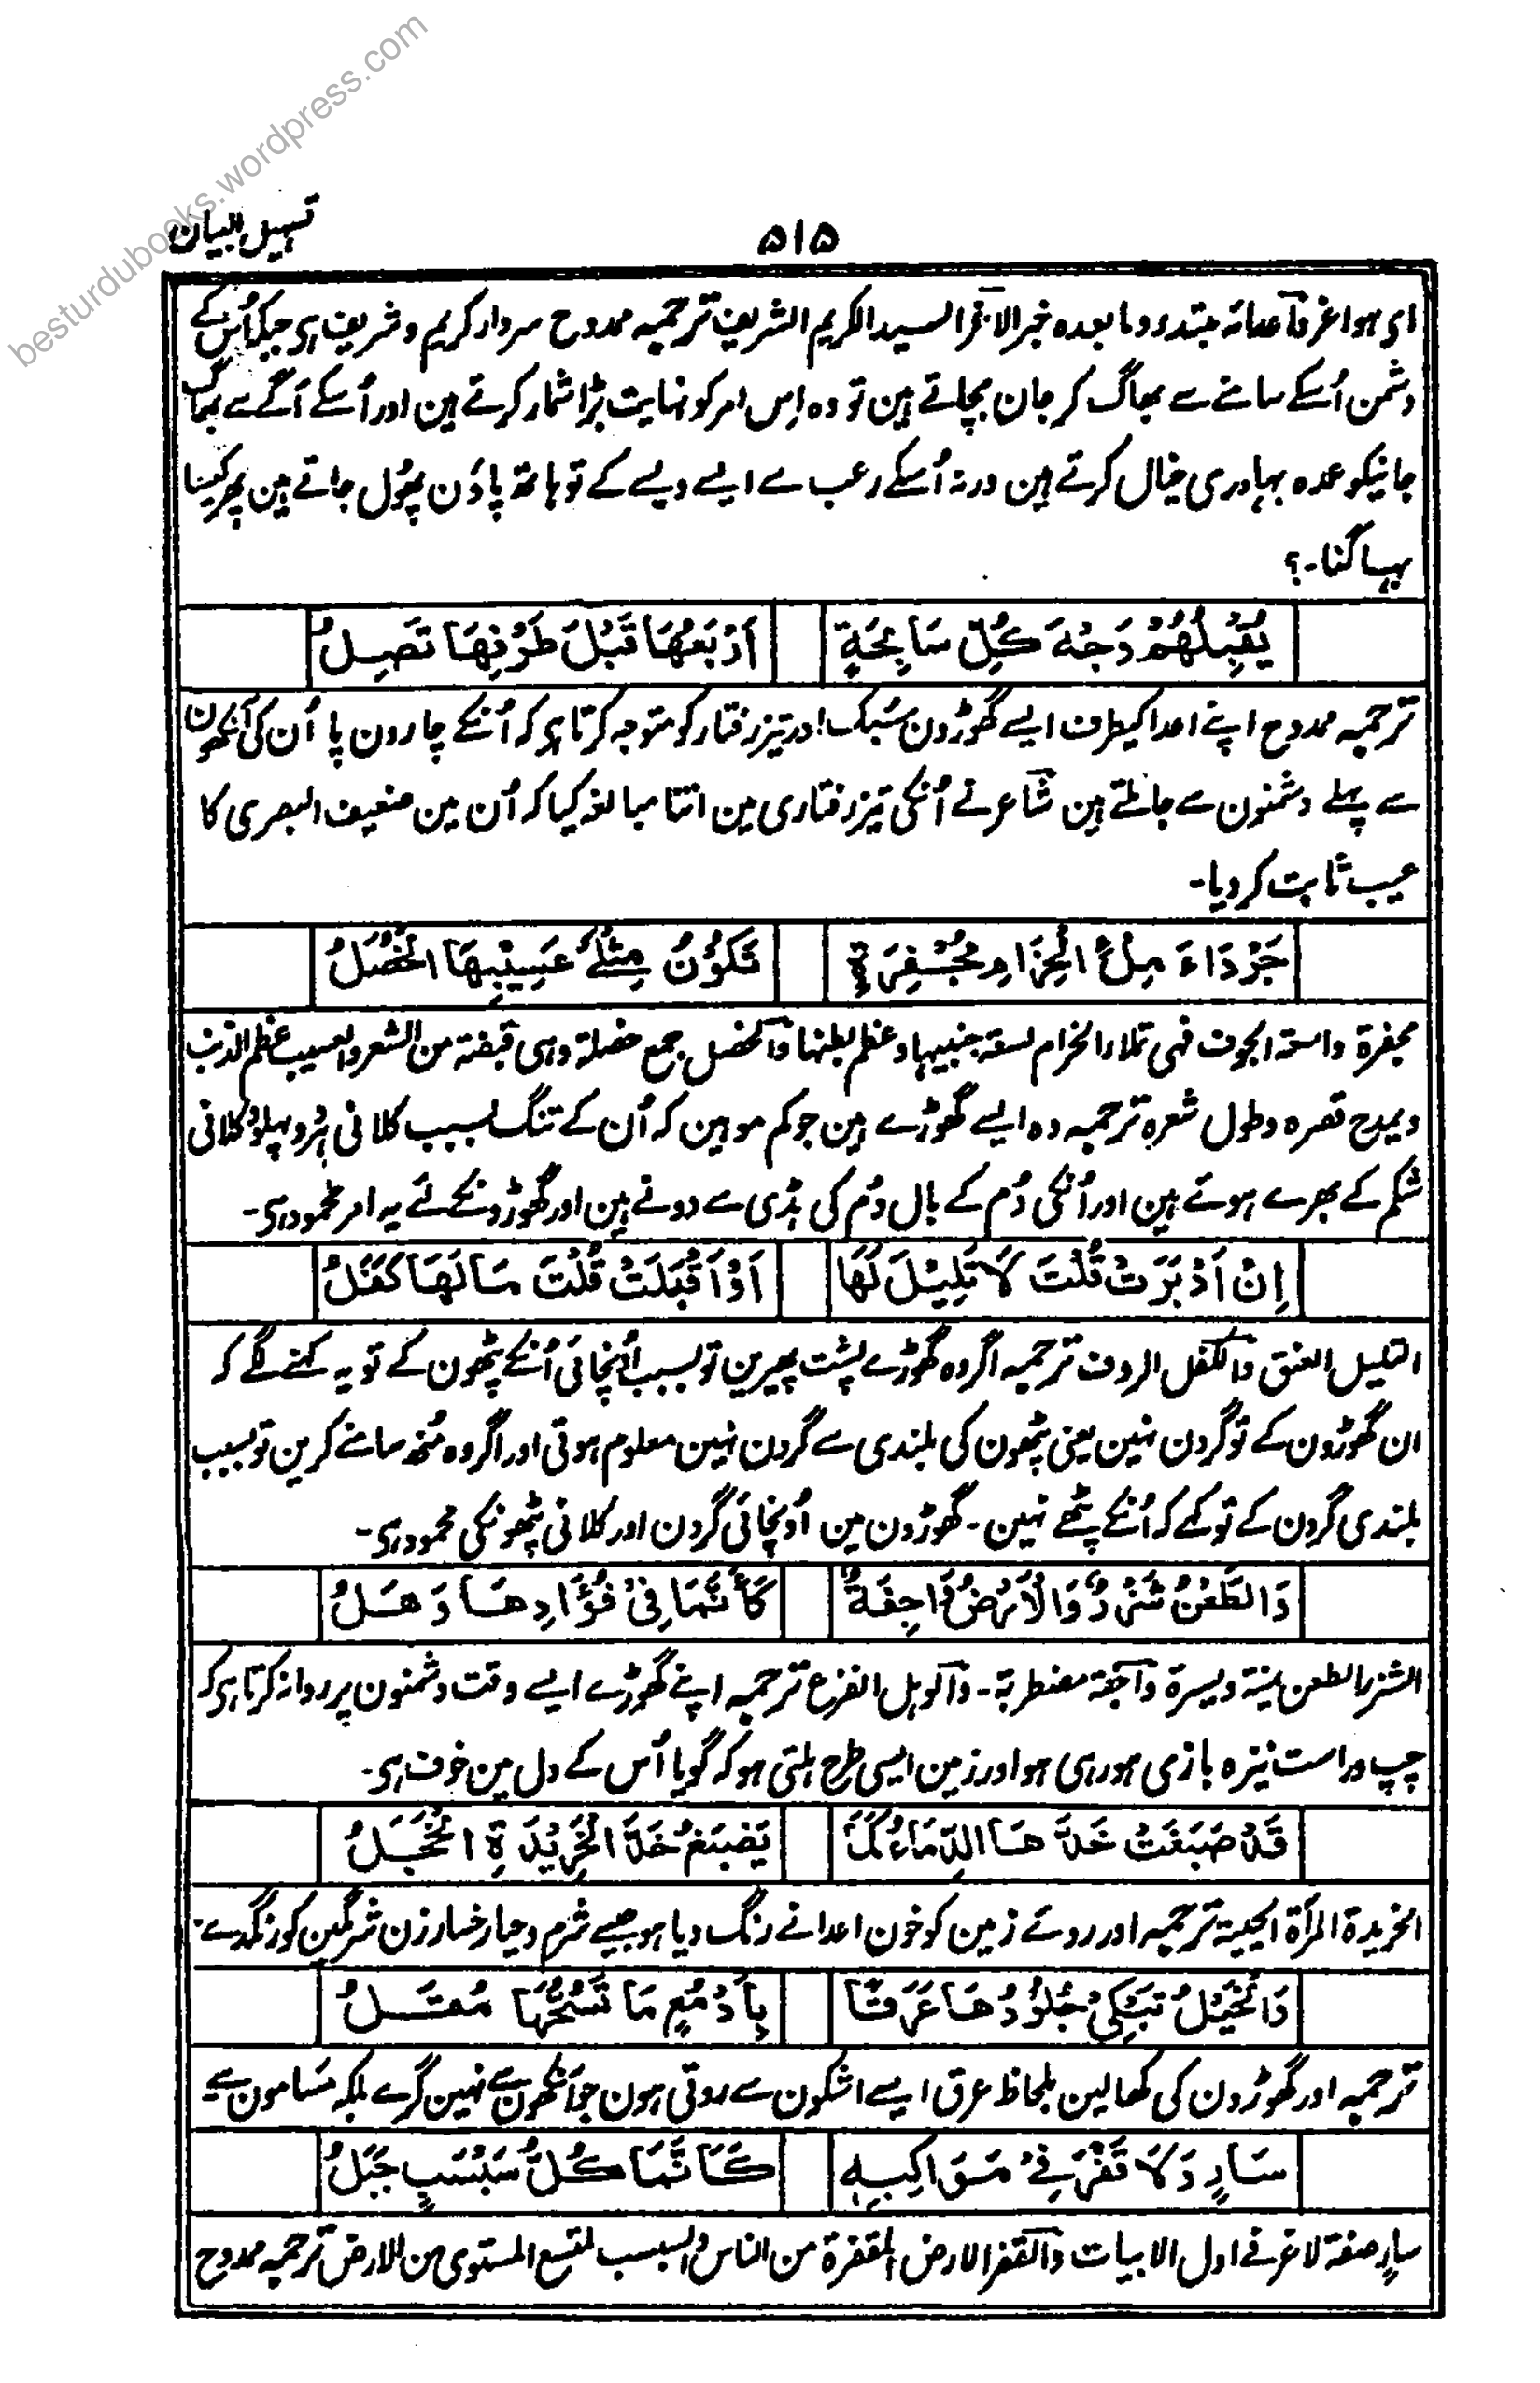 besturdubooks.wordpress.com
تسہیل البیان
۵۱۵
ای ہو اغر فآعدائہ مبتدء وما بعدہ خبر الاغر السید الکریم الشریف ترجمہ ممدوح سردار کریم و شریف ہی جبکہ اُس کے
دشمن اُسکے سامنے سے بھاگ کر جان بچاتے ہین تو وہ اِس امر کو نہایت بڑا شمار کرتے ہین اور اُسکے آگے سے بھاگ
جانیکو عمدہ بہادری خیال کرتے ہین ورنہ اُسکے رعب سے ایسے ویسے کے تو ہاتھ پاؤن پھول جاتے ہین پھر کیسا
بہاگنا-؟
يُقْبِلُهُمْ وَجْهَ كُلِّ سَابِحَةٍ اَرْبَعُهَا قَبْلَ طَرْفِهَا تَصِلُ
ترجمہ ممدوح اپنے اعدا کیطرف ایسے گھوڑون سُبک اور تیز رفتار کو متوجہ کرتا ہی کہ اُنکے چارون پا اُن کی آنکھون
سے پہلے دشمنون سے جا ملتے ہین شاعر نے اُنکی تیز رفتاری مین اتنا مبالغہ کیا کہ اُن مین ضعیف البصری کا
عیب ثابت کردیا-
جَرْدَاءَ مِلْءِ الْحِزَامِ مُجْفِرَةٍ تَكُوْنُ مِثْلَىْ عَسِيْبِهَا الْخُصَلُ
مجفرۃ واسعۃ الجوف فہی تملاء الحزام لسعۃ جنبیہا و عظم بطنہا والخصل جمع خصلۃ وہی قبضۃ من الشعر والعسیب عظم الذنب
ویمدح قصرہ وطول شعرہ ترجمہ وہ ایسے گھوڑے ہین جو کم مو ہین کہ اُن کے تنگ بسبب کلانی ہر دو پہلو و کلانی
شکم کے بھرے ہوئے ہین اور اُنکی دُم کے بال دُم کی ہڈی سے دونے ہین اور گھوڑونکے لئے یہ امر محمود ہی-
اِنْ اَدْبَرَتْ قُلْتَ لَا تَلِيْلَ لَهَا اَوْ اَقْبَلَتْ قُلْتَ مَا لَهَا كَفَلُ
التلیل العنق والکفل الردف ترجمہ اگر وہ گھوڑے پشت پھیرین تو بسبب اُونچائی اُنکے پٹھون کے تو یہ کہنے لگے کہ
ان گھوڑون کے تو گردن نہین یعنی پٹھون کی بلندی سے گردن نہین معلوم ہوتی اور اگر وہ مُنھ سامنے کرین تو بسبب
بلندی گردن کے تو کہے کہ اُنکے پٹھے نہین - گھوڑون مین اُونچائی گردن اور کلانی پٹھونکی محمود ہی-
وَالطَّعْنُ شَزْرٌ وَالْاَرْضُ وَاجِفَةٌ كَاَنَّمَا فِىْ فُؤَادِهَا وَهَلُ
الشزر الطعن یمنۃ ویسرۃ واجفۃ مضطربۃ- والوہل الفزع ترجمہ اپنے گھوڑے ایسے وقت دشمنون پر روانہ کرتا ہی کہ
چپ وراست نیزہ بازی ہورہی ہو اور زمین ایسی طرح ہلتی ہو کہ گویا اُس کے دل مین خوف ہی-
قَدْ صَبَغَتْ خَدَّهَا الدِّمَاءُ كَمَا يَصْبَغُ خَدَّ الْخَرِيْدَةِ الْخَجَلُ
الخریدۃ المرأۃ الحییۃ ترجمہ اور روئے زمین کو خون اعدا نے رنگ دیا ہو جیسے شرم و حیا رخسار زن شرمگین کو رنگدے-
وَالْخَيْلُ تَبْكِىْ جُلُوْدُهَا عَرَقًا بِاَدْمُعٍ مَا تَسُحُّهَا مُقَلُ
ترجمہ اور گھوڑون کی کھالین بلحاظ عرق ایسے اشکون سے روتی ہون جو آنکھون سے نہین گرے بلکہ مَسامون سے-
سَارٍ وَلَا قَفْرَ فِىْ مَوَاكِبِهٖ كَاَنَّمَا كُلُّ سَبْسَبٍ جَبَلُ
سارٍ صفۃ لاغر فے اول الابیات والقفر الارض المقفرۃ من الناس والسبسب المتسع المستوی من الارض ترجمہ ممدوح